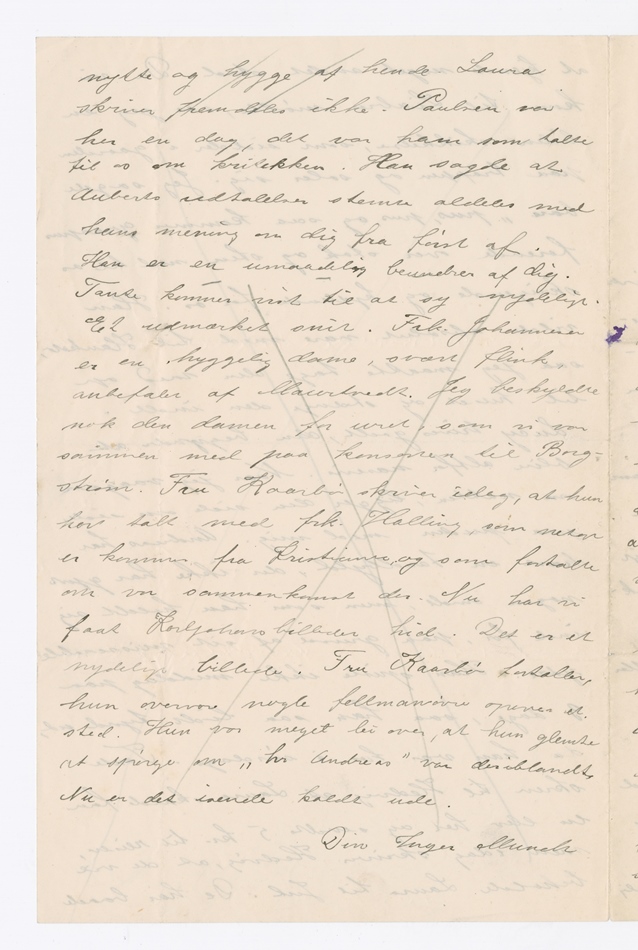 nytte og hygge af hende Laura
skriver fremdeles ikke. Paulsen var
her en dag, det var ham som talte
til os om kritikken. Han sagde at
Auberts udtalelser stemte aldeles med
hans mening om dig fra først af.
Han er en umaadelig beundrer af dig.
Tante kommer vist til at sy nydeligt.
Et udmærket snit. Frk. Johannesen
er en hyggelig dame, svært flink
anbefalet af Maartvedt. Jeg beskyldte
nok den damen for uret, som vi var
sammen med paa konserten til Borg-
strøm. Fru Kaarbø skriver idag, at hun
har talt med frk. Halling som netop
er kommen fra Kristiania, og som fortalte
om vor sammenkomst der. Nu har vi
faat Karljohansbilledet hid. Det er et
nydeligt billede. Fru Kaarbø fortæller,
hun overvar nogle feltmanøvre oppe et
sted. Hun var meget lei over, at hun glemte
at spørge om „hr Andreas" var deriblandt.
Nu er det isende koldt ude.
Din Inger Munch